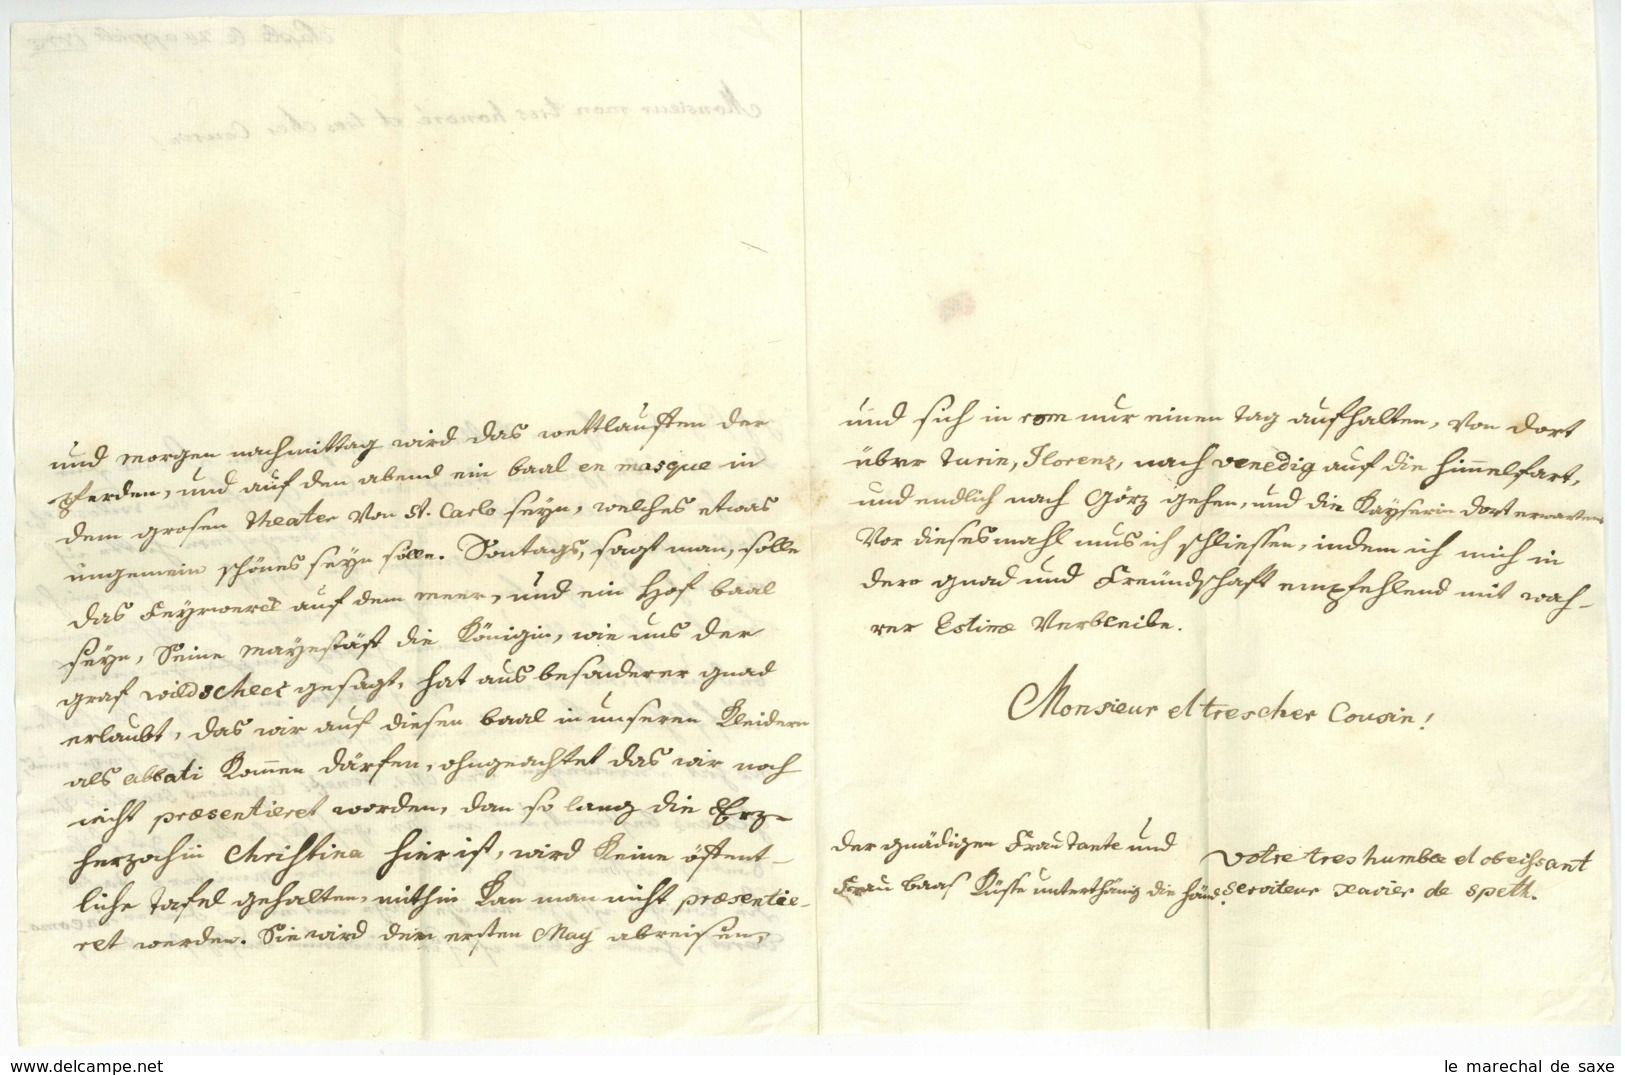 und morgen nachmittag wird das wettlauffen der
Pferden, und auf den abend ein baal en masque in
dem grosen theater von St. Carlo seyn, welches etwas
ungemein schönes seyn solle. Sontags, sagt man, solle
das Feyrwerck auf dem meer, und ein Hof baal
seyn, Seine mayestätt die Königin, wie uns der
graf wildscheck gesagt, hat aus besonderer gnad
erlaubt, das wir auf diesen baal in unseren Kleidern
als abbati Kommen därfen, ohngeachtet das wir noch
nicht præsentieret worden, dan so lang die Erz-
herzohin Christina hier ist, wird Keine öffent-
liche tafel gehalten, mithin Kan man nicht præsentie-
ret werden. Sie wird den ersten May abreisen,
und sich in rom nur einen tag aufhalten, von dort
über turin, Florenz, nach venedig auf die himmelfart,
und endlich nach Görz gehen, und die Kayserin dort erwarten
Vor dieses mahl mus ich schliessen, indem ich mich in
dero gnad und Freündschaft empfehlend mit wah-
rer Estime Verbleibe.
Monsieur et tres cher Cousin!
der gnädigen Frau tante und
Frau baas Küsse unterthänig die händ.
votre tres humble et obeissant
serviteur xavier de speth.
www.delcampe.net
le marechal de saxe